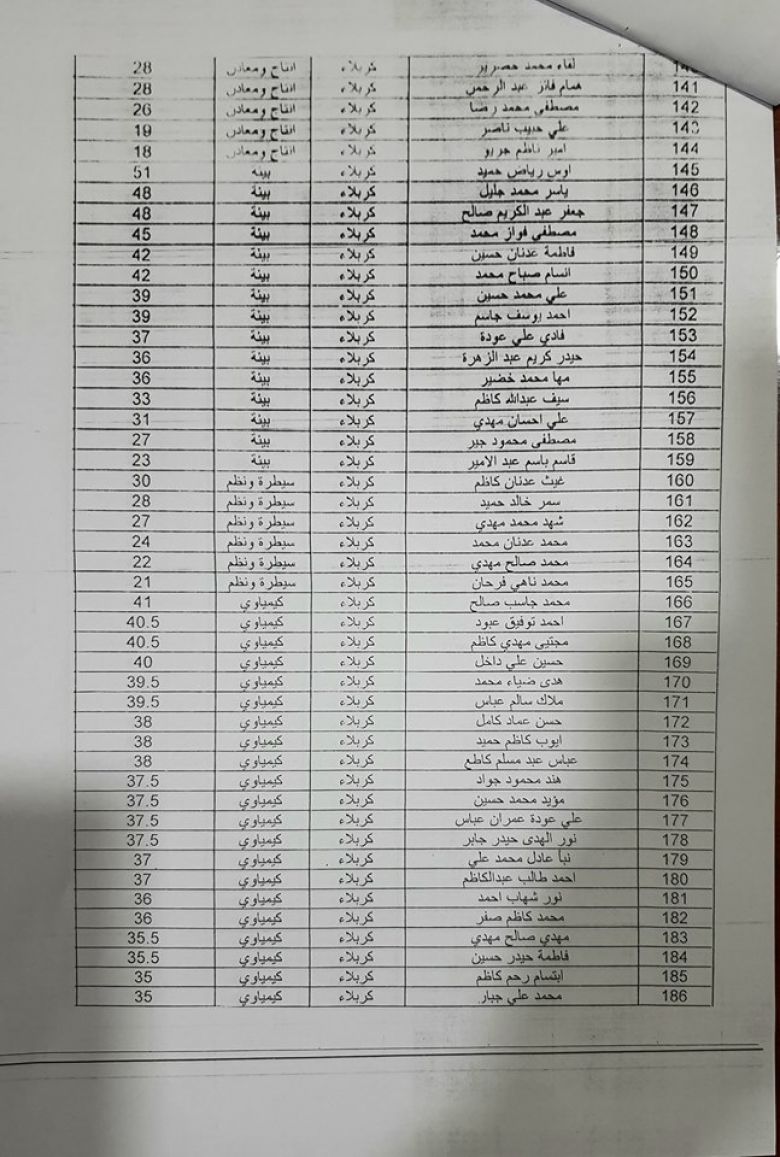 محمد كربلاء انتاج ومعادن 28
141 همام فائز عبد الرحمن كربلاء انتاج ومعادن 28
142 مصطفى محمد رضا كربلاء انتاج ومعادن 26
143 علي حبيب ناصر كربلاء انتاج ومعادن 19
144 امير ناظم كربلاء انتاج ومعادن 18
145 اوس رياض حميد كربلاء بيئة 51
146 ياسر محمد جليل كربلاء بيئة 48
147 جعفر عبد الكريم صالح كربلاء بيئة 48
148 مصطفى فواز محمد كربلاء بيئة 45
149 فاطمة عدنان حسين كربلاء بيئة 42
150 انسام صباح محمد كربلاء بيئة 42
151 علي محمد حسين كربلاء بيئة 39
152 احمد يوسف جاسم كربلاء بيئة 39
153 فادي علي عودة كربلاء بيئة 37
154 حيدر كريم عبد الزهرة كربلاء بيئة 36
155 مها محمد خضير كربلاء بيئة 36
156 سيف عبدالله كاظم كربلاء بيئة 33
157 علي احسان مهدي كربلاء بيئة 31
158 مصطفى محمود جبر كربلاء بيئة 27
159 قاسم باسم عبد الامير كربلاء بيئة 23
160 غيث عدنان كاظم كربلاء سيطرة ونظم 30
161 سمر خالد حميد كربلاء سيطرة ونظم 28
162 شهد محمد مهدي كربلاء سيطرة ونظم 27
163 محمد عدنان محمد كربلاء سيطرة ونظم 24
164 محمد صالح مهدي كربلاء سيطرة ونظم 22
165 محمد ناهي فرحان كربلاء سيطرة ونظم 21
166 محمد جاسب صالح كربلاء كيمياوي 41
167 احمد توفيق عبود كربلاء كيمياوي 40.5
168 مجتبى مهدي كاظم كربلاء كيمياوي 40.5
169 حسين علي داخل كربلاء كيمياوي 40
170 هدى ضياء محمد كربلاء كيمياوي 39.5
171 ملاك سالم عباس كربلاء كيمياوي 39.5
172 حسن عماد كامل كربلاء كيمياوي 38
173 ايوب كاظم حميد كربلاء كيمياوي 38
174 عباس عبد مسلم كاطع كربلاء كيمياوي 38
175 هند محمود جواد كربلاء كيمياوي 37.5
176 مؤيد محمد حسين كربلاء كيمياوي 37.5
177 علي عودة عمران عباس كربلاء كيمياوي 37.5
178 نور الهدى حيدر جابر كربلاء كيمياوي 37.5
179 نبأ عادل محمد علي كربلاء كيمياوي 37
180 احمد طالب عبدالكاظم كربلاء كيمياوي 37
181 نور شهاب احمد كربلاء كيمياوي 36
182 محمد كاظم صفر كربلاء كيمياوي 36
183 مهدي صالح مهدي كربلاء كيمياوي 35.5
184 فاطمة حيدر حسين كربلاء كيمياوي 35.5
185 ابتسام رحم كاظم كربلاء كيمياوي 35
186 محمد علي جبار كربلاء كيمياوي 35